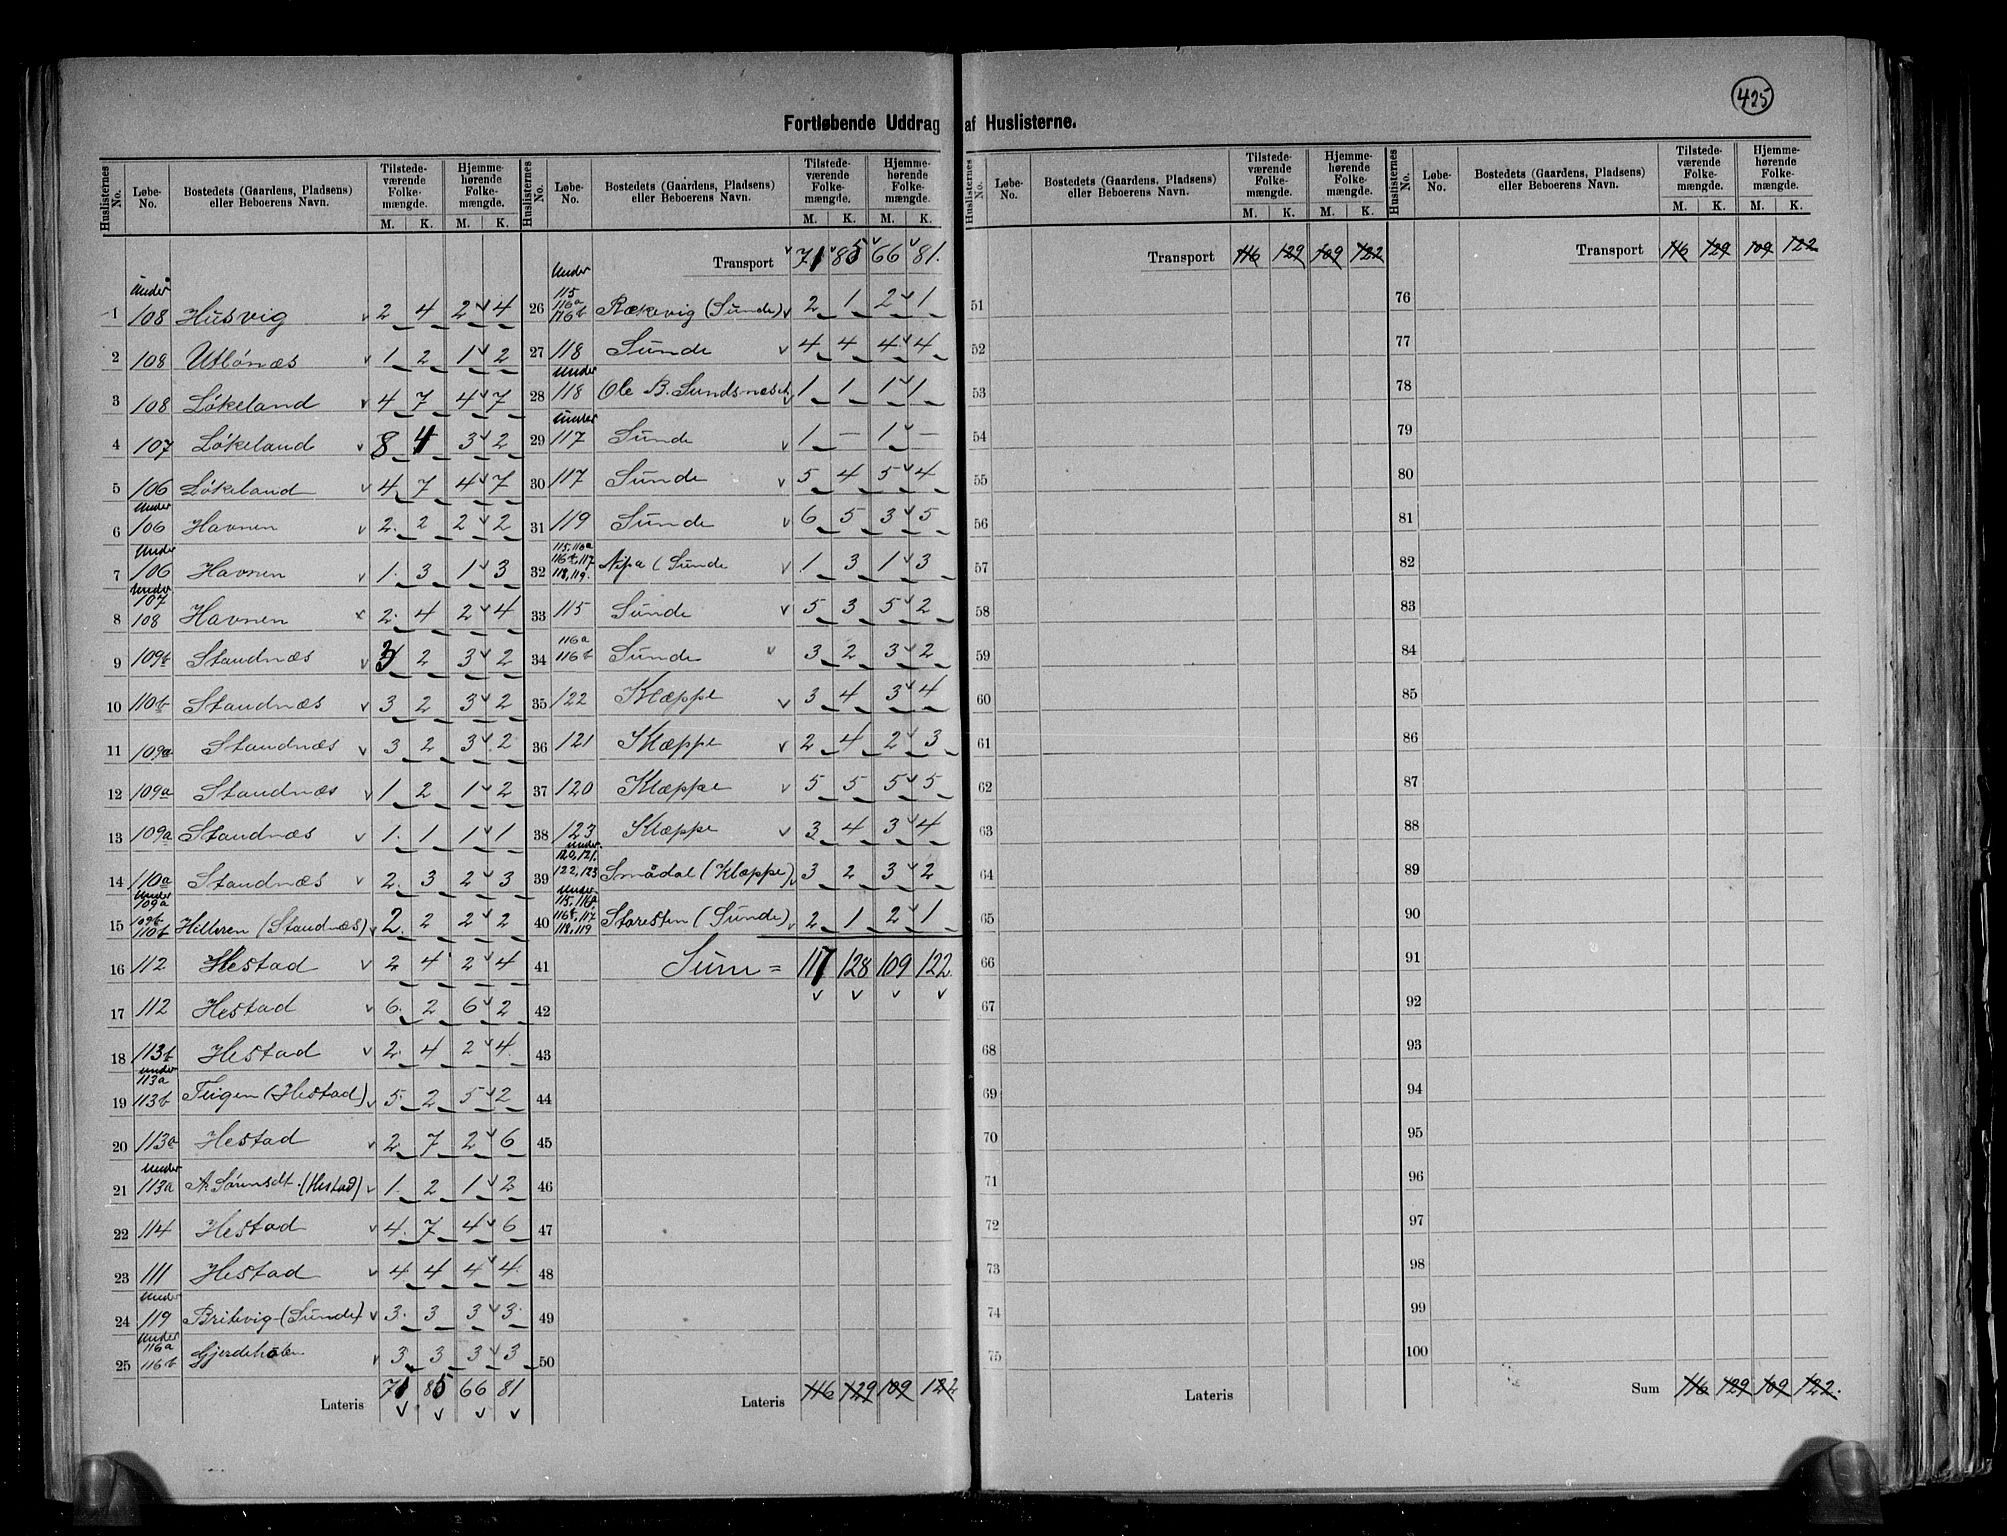 425
Fortløbende Uddrag af Huslisterne.
Huslisternes No. | Løbe-No. | Bostedets (Gaardens, Pladsens) eller Beboerens Navn. | Tilstedeværende Folkemængde. M. K. | Hjemmehørende Folkemængde. M. K.
1 | under 108 | Husvig | 2 | 4 | 2 | 4
2 | 108 | Utlønæs | 1 | 2 | 1 | 2
3 | 108 | Løkeland | 4 | 7 | 4 | 7
4 | 107 | Løkeland | 8 | 4 | 3 | 2
5 | 106 | Løkeland | 4 | 7 | 4 | 7
6 | under 106 | Havnen | 2 | 2 | 2 | 2
7 | under 106 | Havnen | 1 | 3 | 1 | 3
8 | under 107 108 | Havnen | 2 | 4 | 2 | 4
9 | 109b | Standnæs | 3 | 2 | 3 | 2
10 | 110b | Standnæs | 3 | 2 | 3 | 2
11 | 109a | Standnæs | 3 | 2 | 3 | 2
12 | 109a | Standnæs | 1 | 2 | 1 | 2
13 | 109a | Standnæs | 1 | 1 | 1 | 1
14 | 110a | Standnæs | 2 | 3 | 2 | 3
15 | under 109a 109b 110b | Hilleren (Standnæs) | 2 | 2 | 2 | 2
16 | 112 | Hestad | 2 | 4 | 2 | 4
17 | 112 | Hestad | 6 | 2 | 6 | 2
18 | 113b | Hestad | 2 | 4 | 2 | 4
19 | under 113a 113b | Teigen (Hestad) | 5 | 2 | 5 | 2
20 | 113a | Hestad | 2 | 7 | 2 | 6
21 | under 113a | A. Sørensdt. (Hestad) | 1 | 2 | 1 | 2
22 | 114 | Hestad | 4 | 7 | 4 | 6
23 | 111 | Hestad | 4 | 4 | 4 | 4
24 | under 119 | Britevig (Sunde) | 3 | 3 | 3 | 3
25 | under 116a 116b | Gjerdeholen | 3 | 3 | 3 | 3
Lateris | 71 | 85 | 66 | 81
Huslisternes No. | Løbe-No. | Bostedets (Gaardens, Pladsens) eller Beboerens Navn. | Tilstedeværende Folkemængde. M. K. | Hjemmehørende Folkemængde. M. K.
Transport | 71 | 85 | 66 | 81.
26 | under 115 116a 116b | Rækevig (Sunde) | 2 | 1 | 2 | 1
27 | 118 | Sunde | 4 | 4 | 4 | 4
28 | under 118 | Ole B. Sundsnæset | 1 | 1 | 1 | 1
29 | under 117 | Sunde | 1 | — | 1 | —
30 | 117 | Sunde | 5 | 4 | 5 | 4
31 | 119 | Sunde | 6 | 5 | 3 | 5
32 | 115, 116a 116b, 117 118, 119. | Nipa (Sunde | 1 | 3 | 1 | 3
33 | 115 | Sunde | 5 | 3 | 5 | 2
34 | 116a 116b | Sunde | 3 | 2 | 3 | 2
35 | 122 | Klæppe | 3 | 4 | 3 | 4
36 | 121 | Klæppe | 2 | 4 | 2 | 3
37 | 120 | Klæppe | 5 | 5 | 5 | 5
38 | 123 | Klæppe | 3 | 4 | 3 | 4
39 | under 120, 121. 122, 123 | Smådal (Klæppe) | 3 | 2 | 3 | 2
40 | under 115, 116a, 116b, 117 118, 119 | Storesten (Sunde) | 2 | 1 | 2 | 1
41 | Sum = | 117 | 128 | 109 | 122.
42
43
44
45
46
47
48
49
50
Lateris | 116 | 129 | 109 | 122
Huslisternes No. | Løbe-No. | Bostedets (Gaardens, Pladsens) eller Beboerens Navn. | Tilstedeværende Folkemængde. M. K. | Hjemmehørende Folkemængde. M. K.
Transport | 116 | 129 | 109 | 122
51
52
53
54
55
56
57
58
59
60
61
62
63
64
65
66
67
68
69
70
71
72
73
74
75
Lateris
Huslisternes No. | Løbe-No. | Bostedets (Gaardens, Pladsens) eller Beboerens Navn. | Tilstedeværende Folkemængde. M. K. | Hjemmehørende Folkemængde. M. K.
Transport | 116 | 129 | 109 | 122
76
77
78
79
80
81
82
83
84
85
86
87
88
89
90
91
92
93
94
95
96
97
98
99
100
Sum | 116 | 129 | 109 | 122.